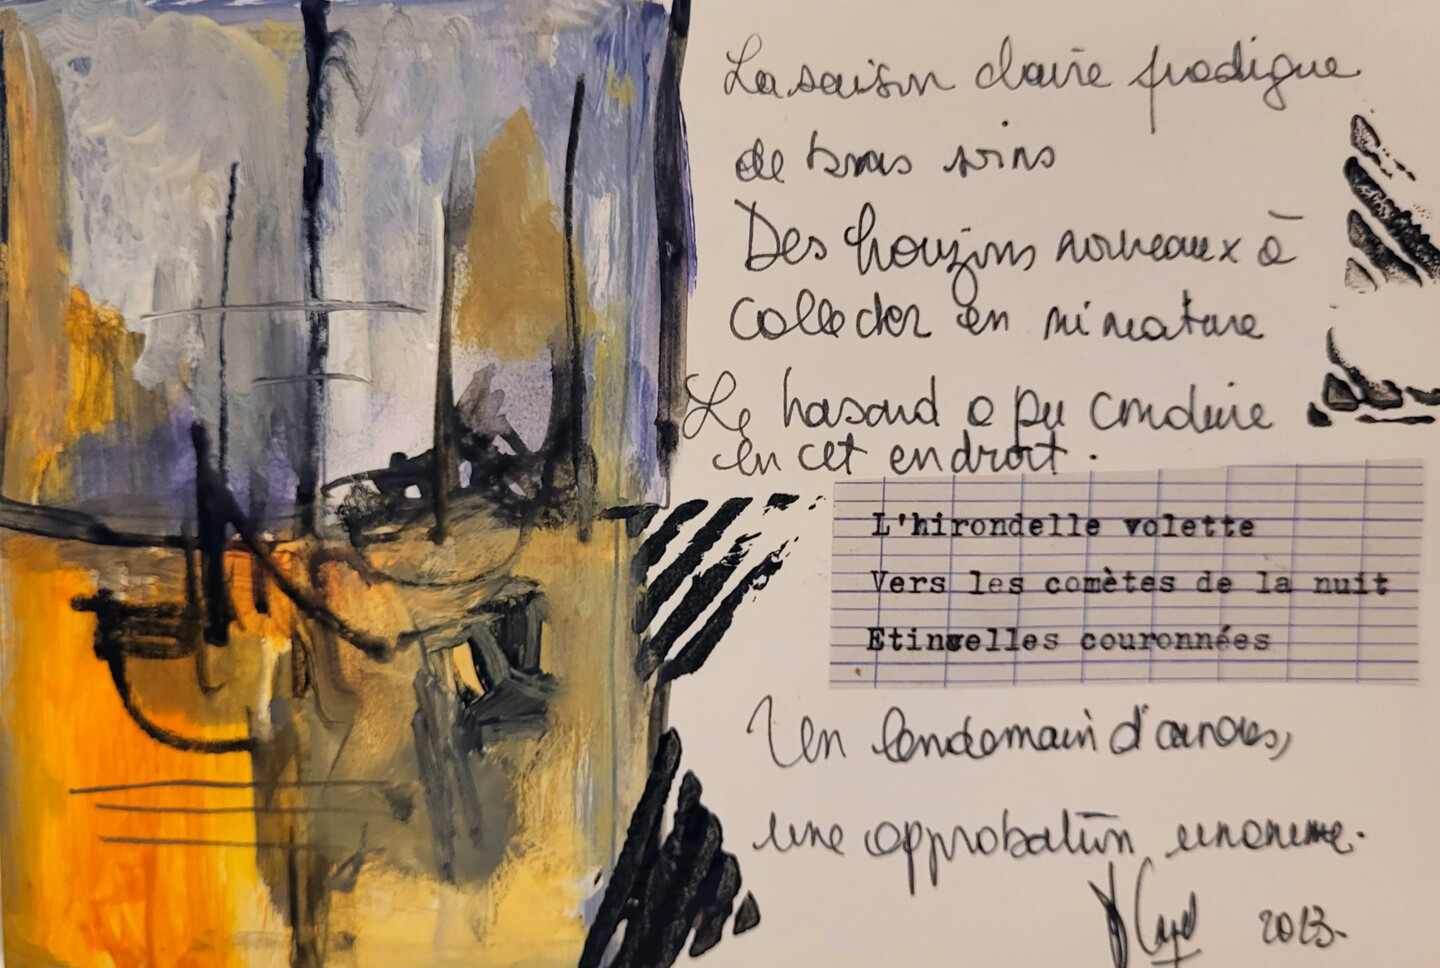 La saison claire prodigue
de bons soins
Des horizons nouveaux à
collecter en miniature
Le hasard a pu conduire
en cet endroit.
L'hirondelle volette
Vers les comètes de la nuit
Etincelles couronnées
Un lendemain
une approbation unanime.
2023.